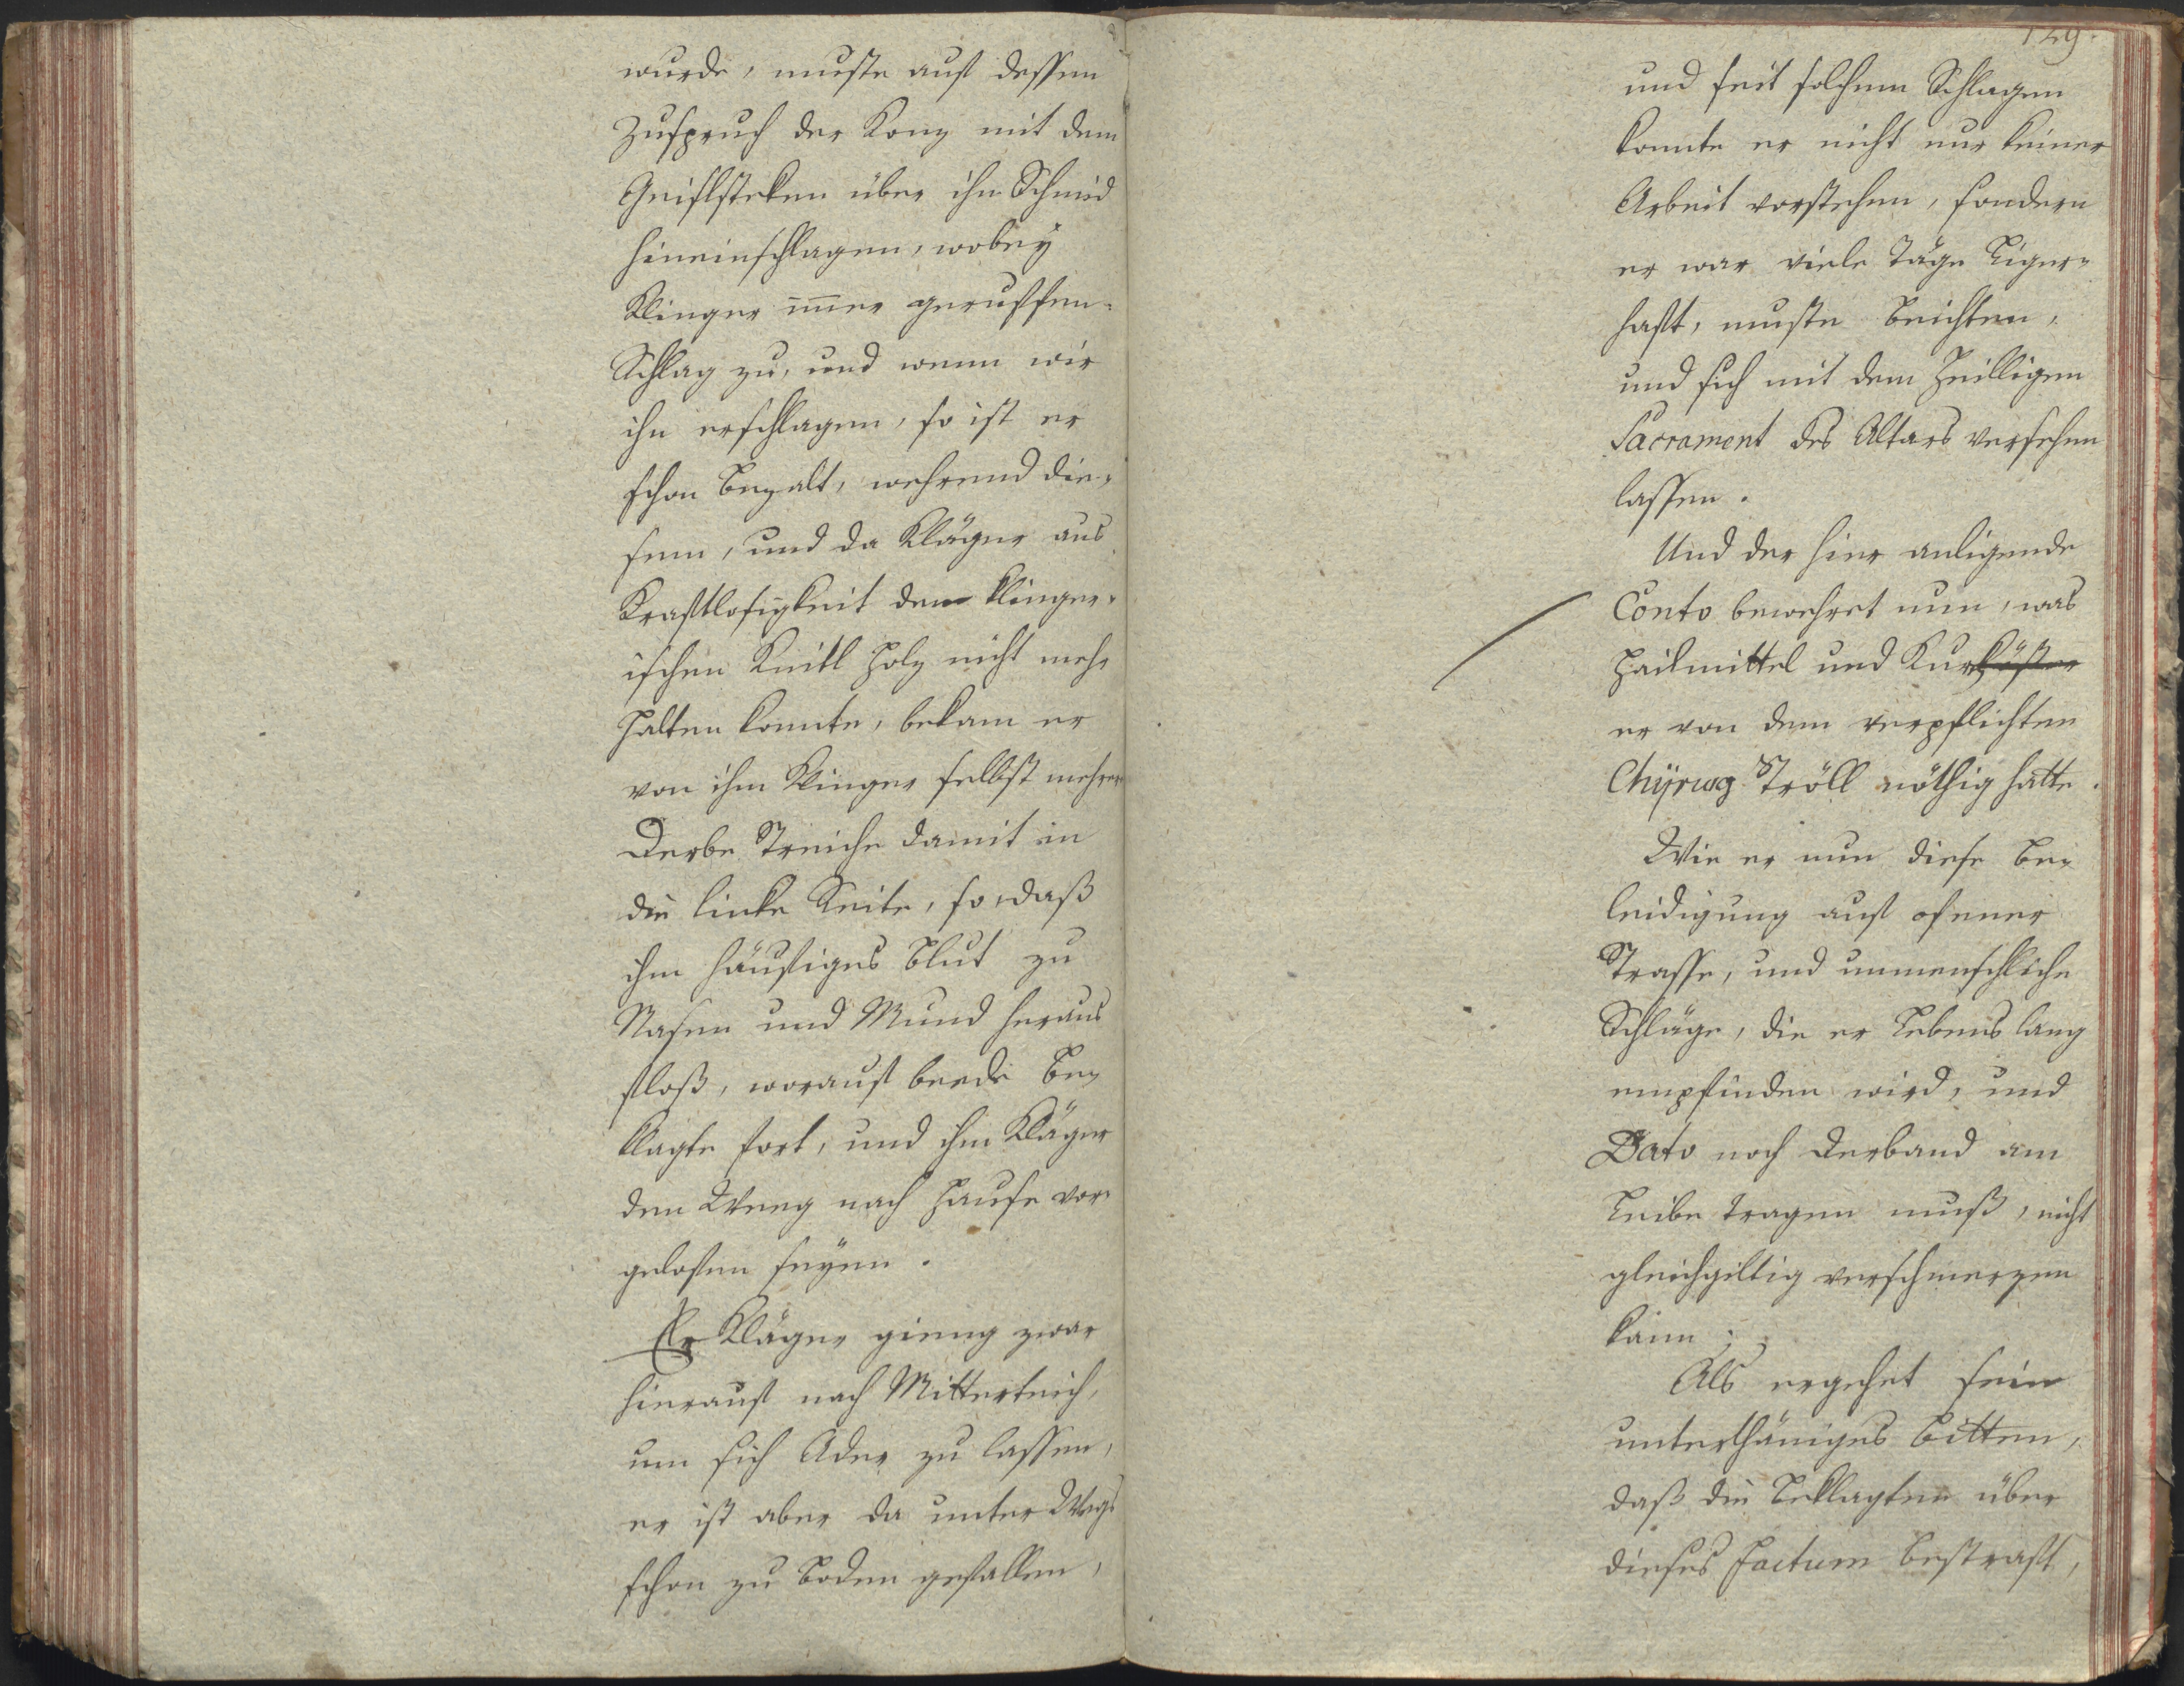 wurde, muste auf dessen
Zuspruch der Konz mit dem
Greiflsteken über ihn Schmid
hineinschlagen, wobey
Klinger im̄er geruffen:
Schlag zu, und wenn wir
ihn erschlagen, so ist er
schon bezalt, wehrend die¬
sem, und da Kläger aus
Kraftlosigkeit dem klinger¬
ischen Knitl Holz nicht mehr
halten konnte, bekam er
von ihm Klinger selbst mehrere
derbe Streiche damit in
die linke Seite, so, daß
ihm häufiges Blut zu
Nasen und Mund heraus
floß, worauf beede Be¬
klagte fort, und ihm Kläger
den Weeg nach Hause vor
geloffen seyen.
Er Kläger gieng zwar
hierauf nach Mitterteich,
um sich Ader zu lassen,
er ist aber da unter Wegs
schon zu Boden gefallen,
129.
und seit solchem Schlagen
konnte er nicht nur keiner
Arbeit vorstehen, sondern
er war viele Täge Liger¬
haft, muste beichten,
und sich mit dem Heilligen
Sacrament des Altars versehen
lassen.
Und der hier anligende
Conto bewehret nun, was
Hailmittel und Kurkösten
er von dem verpflichten
Chÿrurg Tröll nöthig hatte.
Wie er nun diese Be¬
leidigung auf ofener
Strasse, und unmenschliche
Schläge, die er Lebens lang
empfinden wird, und
Dato noch Verband am
Leibe tragen muß, nicht
gleichgiltig verschmerzen
kann;
Als ergehet sein
unterthäniges Bitten,
daß die Beklagten über
dieses Factum bestraft,